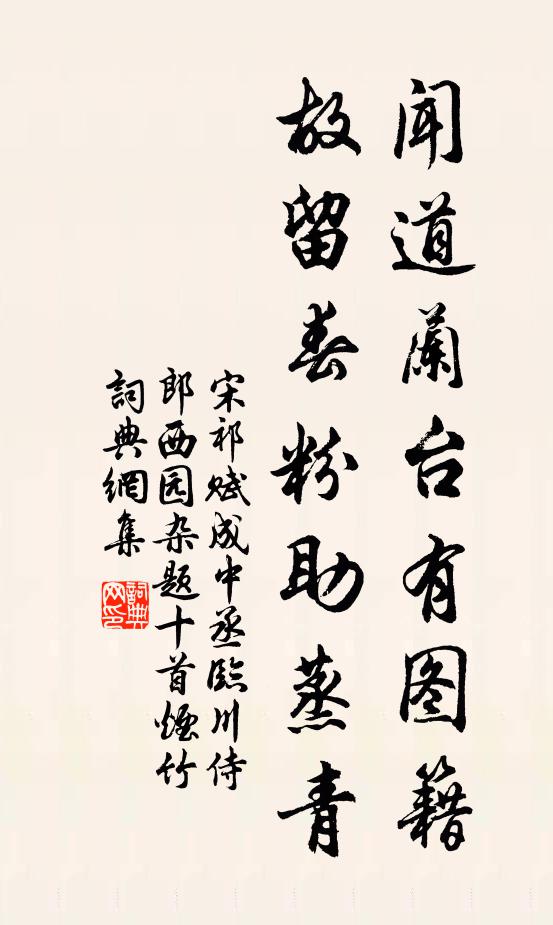 聞道蘭台有图籍
故留春粉助蒸青
宋祁赋成中丞臨川侍
郎西园杂题十首煙竹
詞典網集
詞典网印